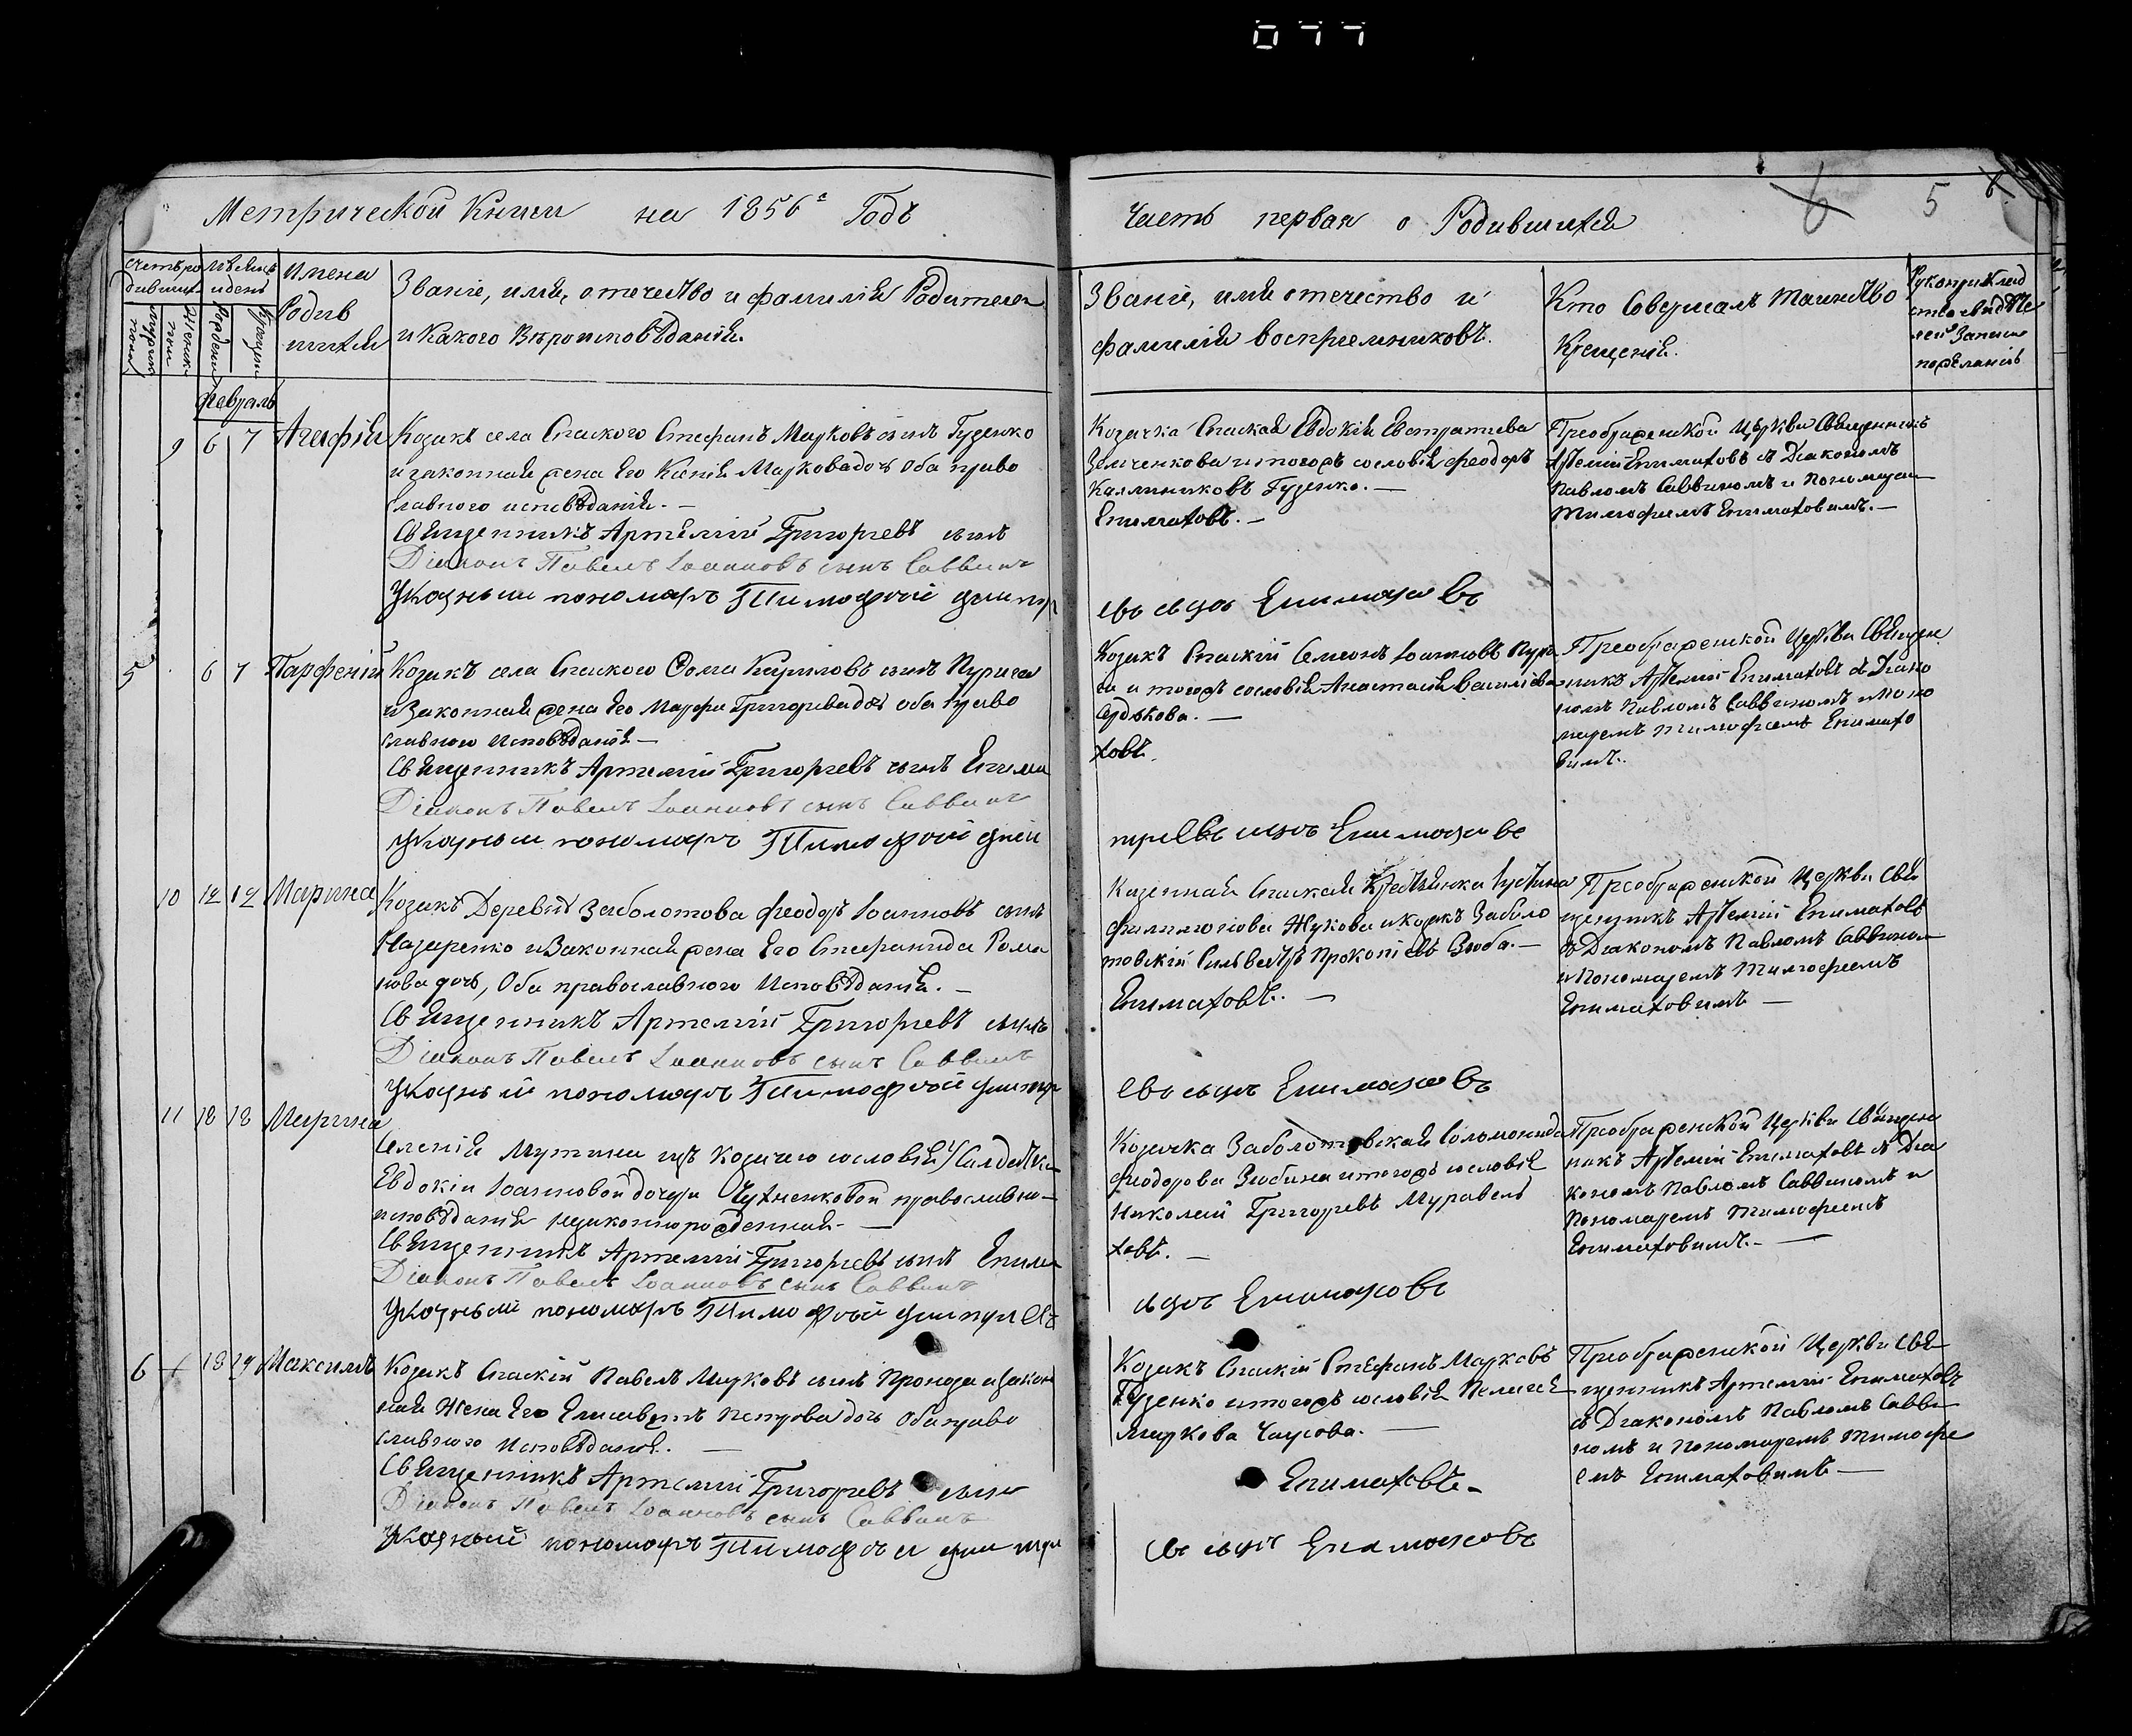 077
Метрической Книги на 1856й Годъ
Часть первая о Родившихся
6 5
Счетъ ро
дившихся
Мѣсяцъ
и день
Имена
Родив
шихся
Званіе, имя, отечество и фамилія Родителей
и Какого Вѣроисповѣданія.
Званіе, имя отечество и
фамилія воспріемниковъ.
Кто Совершалъ таинство
Крещенія.
Рукоприклад
ство свидѣте
лей Записи
по желанію
Мужеска
пола
Женска
пола
Рожденія
Крещенія
Февраль
9 6 7 Агафія
Козакъ села Спаского Стефанъ Марковъ сынъ Гузенко
и законная жена Его Ксенія Маркова дочь Оба право
славного исповѣданія. —
Священникъ Артемій Григорьевъ сынъ
Діаконъ Павелъ Іоанновъ сынъ Саввинъ
Указный пономарь Тимофей Дмитр
Козачка Спаская Евдокія Евстратиева
Зеиченкова и тогожъ сословія Феодоръ
Каллиниковъ Гузенко. —
Епиматовъ. —
евъ сынъ Епиматовъ
Преображенской Церкви Священникъ
Артемій Епиматовъ съ Діакономъ
Павломъ Саввиномъ и Пономарем
Тимофеемъ Епиматовымъ. —
5 6 7 Парфеній
Козакъ села Спаского Фома Кириловъ сынъ Пурига
и Законная жена Его Марфа Григорьева дочь оба право
славного Исповѣданія —
Священникъ Артемій Григорьевъ сынъ Епима
Діаконъ Павелъ Іоанновъ сынъ Саввинъ
Указный пономарь Тимофей Дми
Козакъ Спаский Семіонъ Іоанновъ Пури
га и тогожъ сословія Анастасія Василіева
Сердькова. —
товъ.
тріевъ сынъ Епиматовъ
Преображенской Церкви Священ
никъ Артемій Епиматовъ съ Діако
номъ Павломъ Саввиномъ и Поно
маремъ Тимофеемъ Епимато
вымъ.
10 12 12 Марина
Козакъ Деревни Заболотова Феодоръ Іоанновъ сынъ
Назаренко и Законная жена Его Стефанида Рома
нова дочь, Оба православного Исповѣданія. —
Священникъ Артемій Григорьевъ сынъ
Діаконъ Павелъ Іоанновъ сынъ Саввинъ
Указный пономарь Тимофей Дмитр
Казенная Спаская Крестьянка Іустина
Филимонова Жукова и козакъ Заболо
товскій Сильвестръ Прокопіевъ Зюба. —
Епиматовъ. —
евъ сынъ Епиматовъ
Преображенской Церкви Свя
щенникъ Артемій Епиматовъ
съ Діакономъ Павломъ Саввином
и Пономаремъ Тимофеемъ
Епиматовымъ —
11 18 18 Марина
Селенія Мутина изъ Козачего сословія Салдатка
Евдокіи Іоанновой дочери православно
исповѣданія незаконнорожденная. —
Священникъ Артемій Григорьевъ сынъ Епима
Діаконъ Павелъ Іоанновъ сынъ Саввинъ
Указный пономарь Тимофей Дмитріевъ
Козачка Заболотовская Соломонида
Феодорова Зюбина и тогожъ сословія
Николай Григорьевъ Муравель
товъ. —
сынъ Епиматовъ
Преображенской Церкви Священ
никъ Артемій Епиматовъ съ Діа
кономъ Павломъ Саввиномъ и
Пономаремъ Тимофеемъ
Епиматовымъ. —
6 18 19 Максимъ
Козакъ Спаскій Павелъ Марковъ сынъ Пронода и закон
ная Жена Его Елисаветъ Петрова дочь Оба право
славного Исповѣданія. —
Священникъ Артемій Григорьевъ сынъ
Діаконъ Павелъ Іоанновъ сынъ Саввинъ
Указный пономарь Тимофей Дмитри
Козакъ Спаскій Стефанъ Марковъ
Гузенко и тогожъ сословія Пелагея
Маркова Чаусова. —
Епиматовъ. —
евъ сынъ Епиматовъ
Преображенской Церкви Свя
щенникъ Артемій Епиматовъ
съ Діакономъ Павломъ Савви
номъ и Пономаремъ Тимофе
емъ Епиматовымъ —